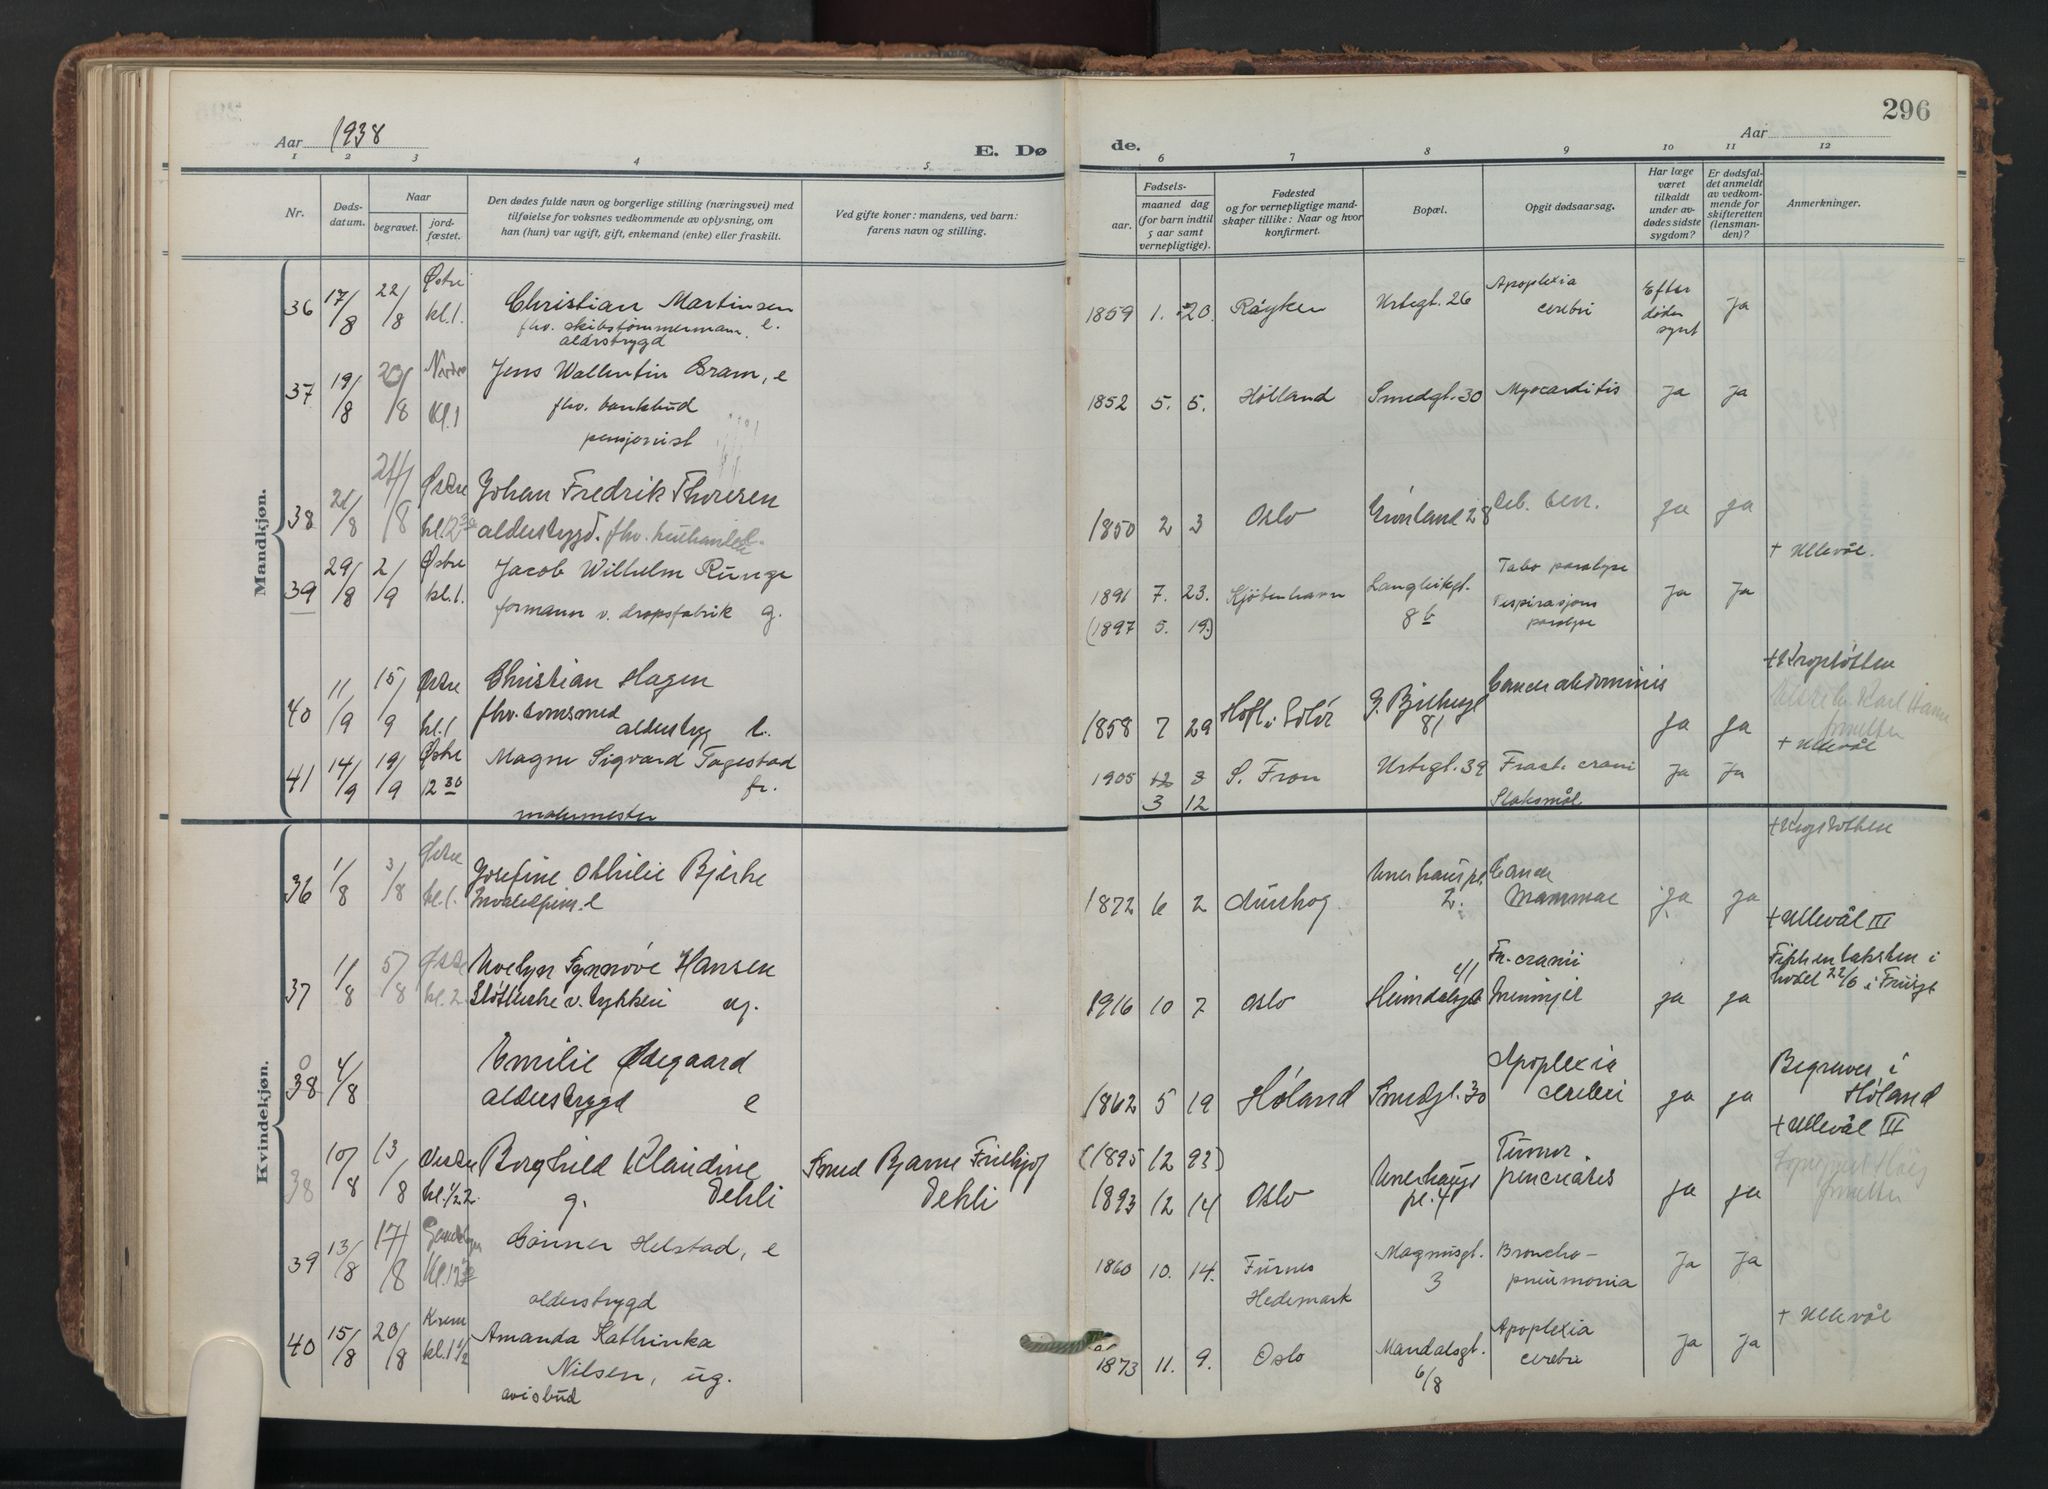 296
Aar 1938
E. Dø
de.
Aar
1 2 3 4 5 6 7 8 9 10 11 12
Nr.
Døds-
datum.
Naar
begravet.
jord-
fæstet.
Den dødes fulde navn og borgerlige stilling (næringsvei) med
tilføielse for voksnes vedkommende av oplysning, om
han (hun) var ugift, gift, enkemand (enke) eller fraskilt.
Ved gifte koner: mandens, ved barn:
farens navn og stilling.
Fødsels-
aar.
maaned dag
(for barn indtil
5 aar samt
vernepligtige).
Fødested
og for vernepligtige mand-
skaper tillike: Naar og hvor
konfirmert.
Bopæl.
Opgit dødsaarsag.
Har læge
været
tilkaldt
under av-
dødes sidste
sygdom?
Er dødsfal-
det anmeldt
av vedkom-
mende for
skifteretten
(lensman-
den)?
Anmerkninger.
Mandkjøn.
36 17/8 22/8 Østre kl. 1. Christian Martinsen
fhv. skibstømmermann. e.
alderstrygd
1859 1. 20. Røyken Urtegt. 26 Apoplexia cerebri Efter døden synt Ja
37 19/8 23/8 Nordre Kl. 1 Jens Wallentin Bram, e
fhv. bankbud
pensjonist
1852 5. 5. Hølland Smedgt. 30 Myocarditis Ja Ja
38 21/8 24/8 Østre kl. 12 30 Johan Fredrik Thoresen
alderstrygd. fhv.
1850 2 3 Oslo Grønland 28 Deb. cerr. ja ja
39 29/8 2/9 Østre kl. 1. Jacob Wilhelm Runge
formann v. dropsfabrik g.
1891 7. 23. Kjøbenhavn Langleikgt. 8 b Tabo paralyse Ja Ja + Ullevål.
(1897 5. 19.) Respirasjons paralyse
40 11/9 15/9 Østre kl. 1 Christian Hagen
fhv. alderstryg e.
1858 7 29 Hof i Solør G. 81 Cancer abdominis ja ja
41 14/9 19/9 Østre 12 30 Magne Sigvard Tagestad
fr.
malermester
1905 12 8 S. Fron Urtegt. 39 Fract. crani Ja Ja + Ullevål
3 12 Slaksmål.
Kvindekjøn.
36 1/8 3/8 Østre kl. 1. Josefine Othilie Bjerke
e
1872 6 2 Enerhaugpl. 2. Cancer Mammae ja ja
+ Ullevål III
37 1/8 5/8 Østre kl. 2 Evelyn Synnøve Hansen
v. trykkeri ug.
1916 10 7 Oslo Heimdalsgt 41 Fr. cranii Meninger ja ja
38 4/8 Emilie Ødegaard
alderstrygd e
1862 5 19 Høland Smedgt. 30 Apoplexia cerebri ja ja Begraves i Høland
38 10/8 13/8 Vestre kl. 1/2 2 Borghild Klaudine
g. Dehli
Smed Bjarne Frithjof
Dehli
(1895 12 23)
1893 12 14 Oslo Enerhaugs pl. 4 Tumor pencreates ja ja + Ullevål III
39 13/8 17/8 Kl. 12 30 Gunner Helstad, e
alderstrygd
1860 10. 14. Furnes Hedemark Magnusgt. 3 Broncho-pneumonia Ja Ja
40 15/8 20/8 Krem kl. 1 1/2 Amanda Kathinka
Nilsen, ug.
avisbud
1873 11. 9. Oslo Mandalsgt. 6/8 Apoplexia cerebri Ja Ja + Ullevål